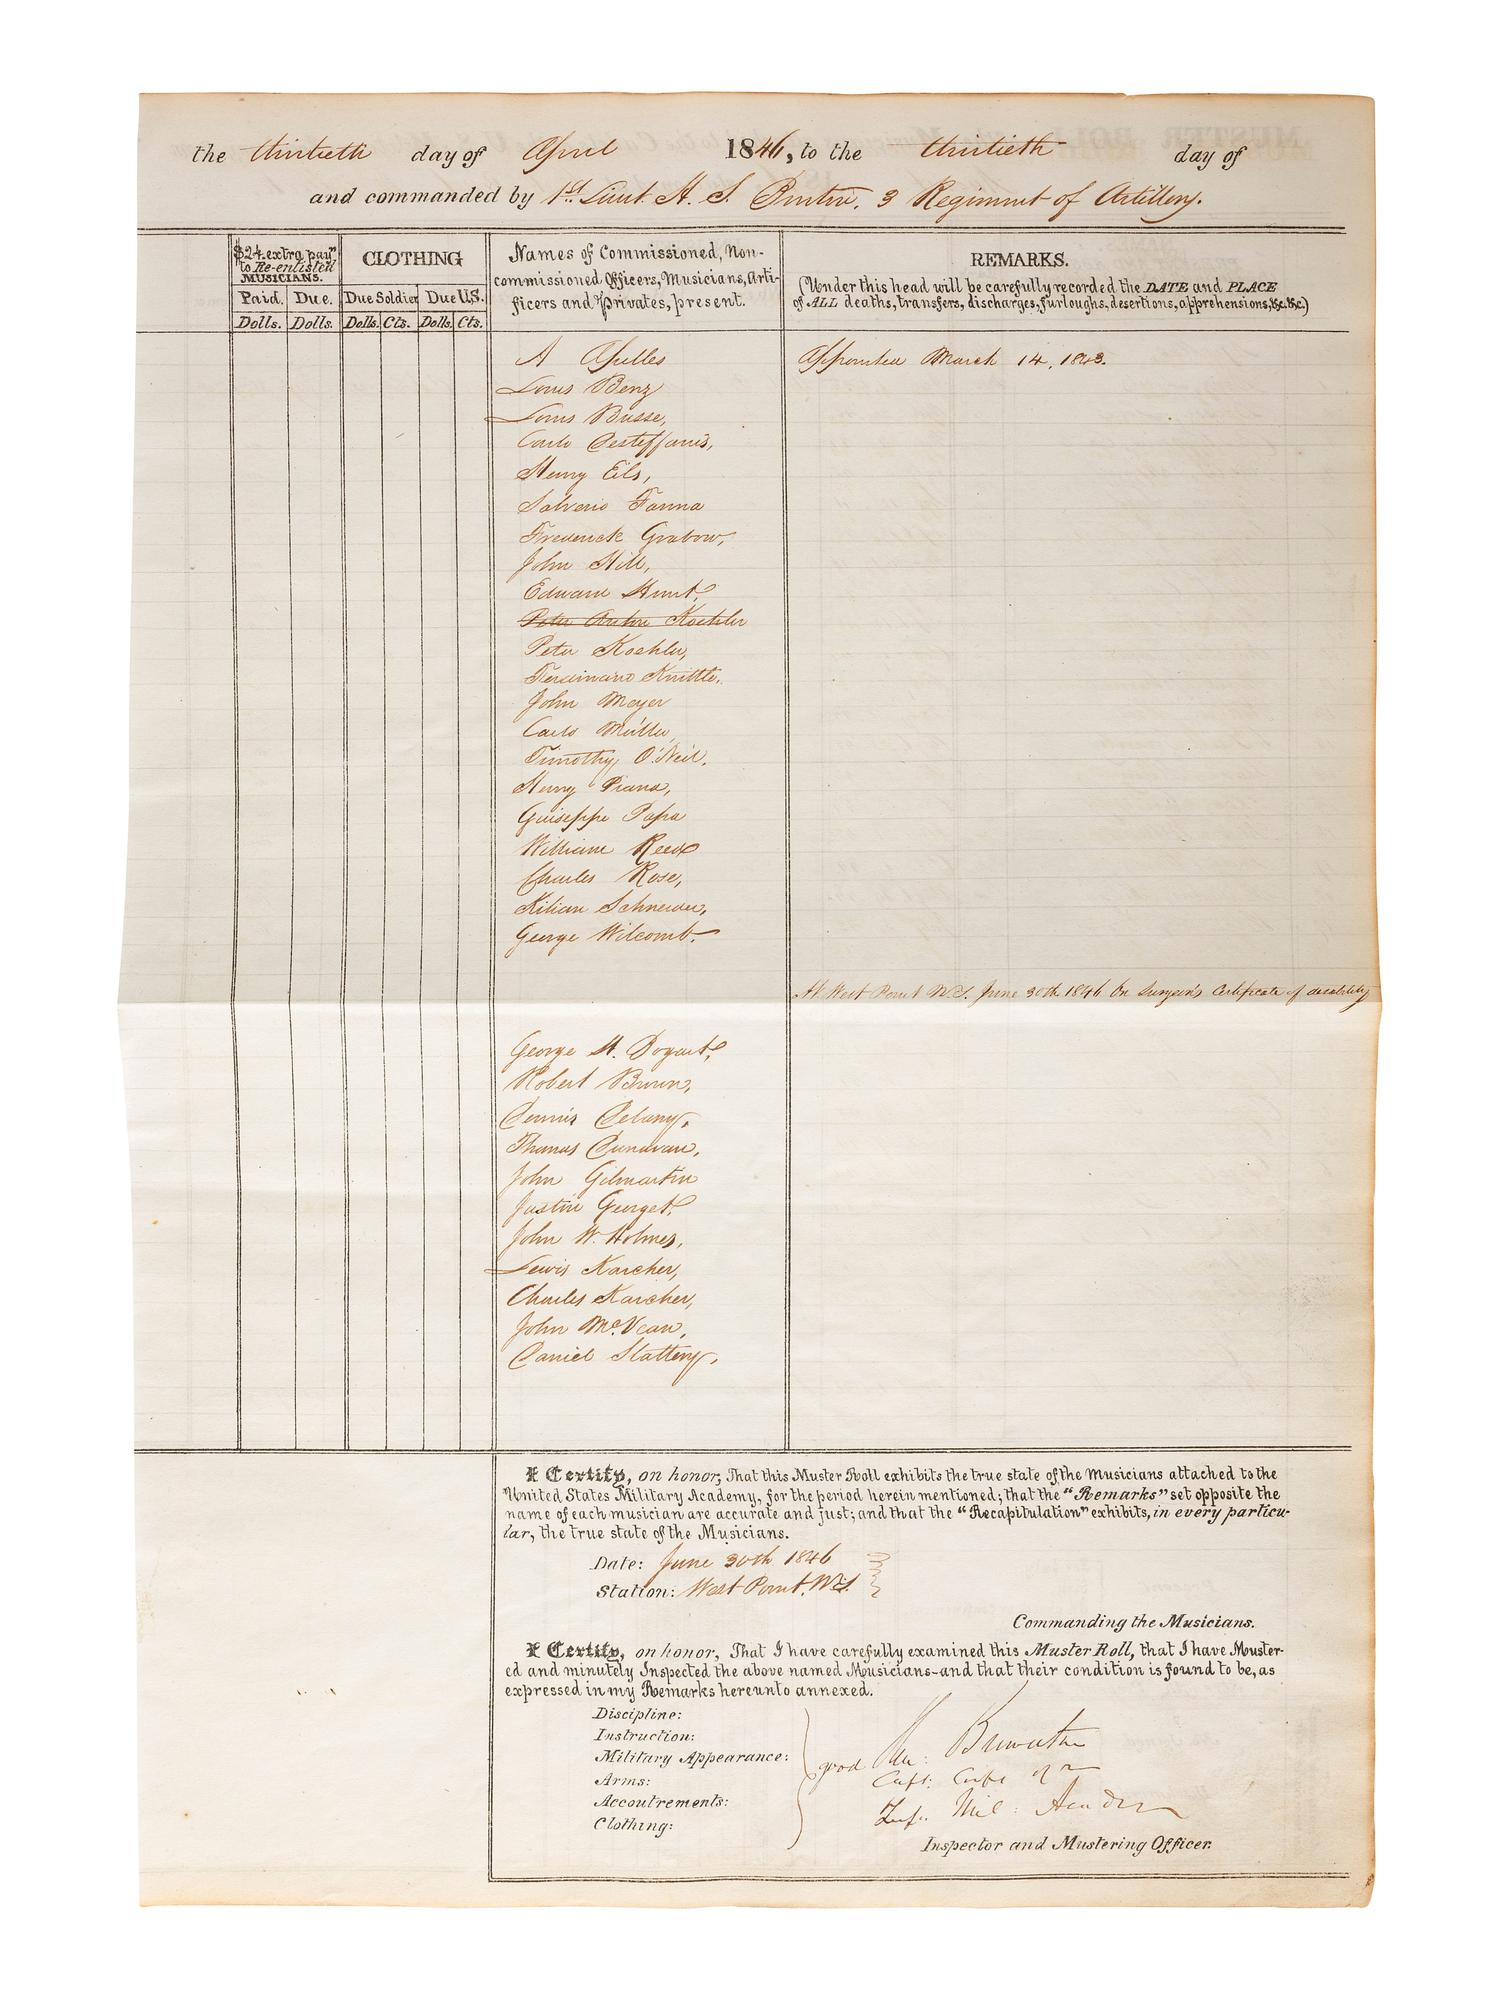 the thirtieth day of April 1846, to the thirtieth day of
and commanded by 1st Lieut. H. S. Burton. 3 Regiment of Artillery.
$24 extra pay to Re-enlisted MUSICIANS.
Paid. Due.
Dolls. Dolls.
CLOTHING
Due Soldier Due U.S.
Dolls. Cts. Dolls. Cts.
Names of Commissioned, Non-
commissioned Officers, Musicians, Arti-
ficers and Privates, present.
REMARKS.
(Under this head will be carefully recorded the DATE and PLACE
of ALL deaths, transfers, discharges, furloughs, desertions, apprehensions, &c. &c.)
A Apelles Appointed March 14, 1843.
Louis Benz
Louis Busse,
Carlo Desteffanis,
Henry Eils,
Salverio Fanna
Frederick Grabow,
John Hill,
Edward Hunt,
Peter Anton Koehler
Peter Koehler,
Ferdinand Knittle,
John Meyer
Carls Müller,
Timothy O'Neil.
Henry Prana,
Guiseppe Papa
William Reed
Charles Rose,
Kilian Schneider,
George Wilcomb.
At West Point N.Y. June 30th 1846 On Surgeon's Certificate of disability
George H. Bogart,
Robert Brown,
Dennis Delany,
Thomas Donavan,
John Gilmartin
Justin Georget,
John W. Holmes,
Lewis Karcher,
Charles Karcher,
John McVean,
Daniel Slattery,
I Certify, on honor, That this Muster Roll exhibits the true state of the Musicians attached to the
United States Military Academy, for the period herein mentioned; that the "Remarks" set opposite the
name of each musician are accurate and just; and that the "Recapitulation" exhibits, in every particu-
lar, the true state of the Musicians.
Date: June 30th 1846
Station: West Point, N.Y.
Commanding the Musicians.
I Certify, on honor, That I have carefully examined this Muster Roll, that I have Muster-
ed and minutely Inspected the above named Musicians-and that their condition is found to be, as
expressed in my Remarks hereunto annexed.
Discipline:
Instruction:
Military Appearance: good
Arms:
Accoutrements:
Clothing:
Brewerton
Capt: Corps of
Supt. Mil: Academy
Inspector and Mustering Officer.